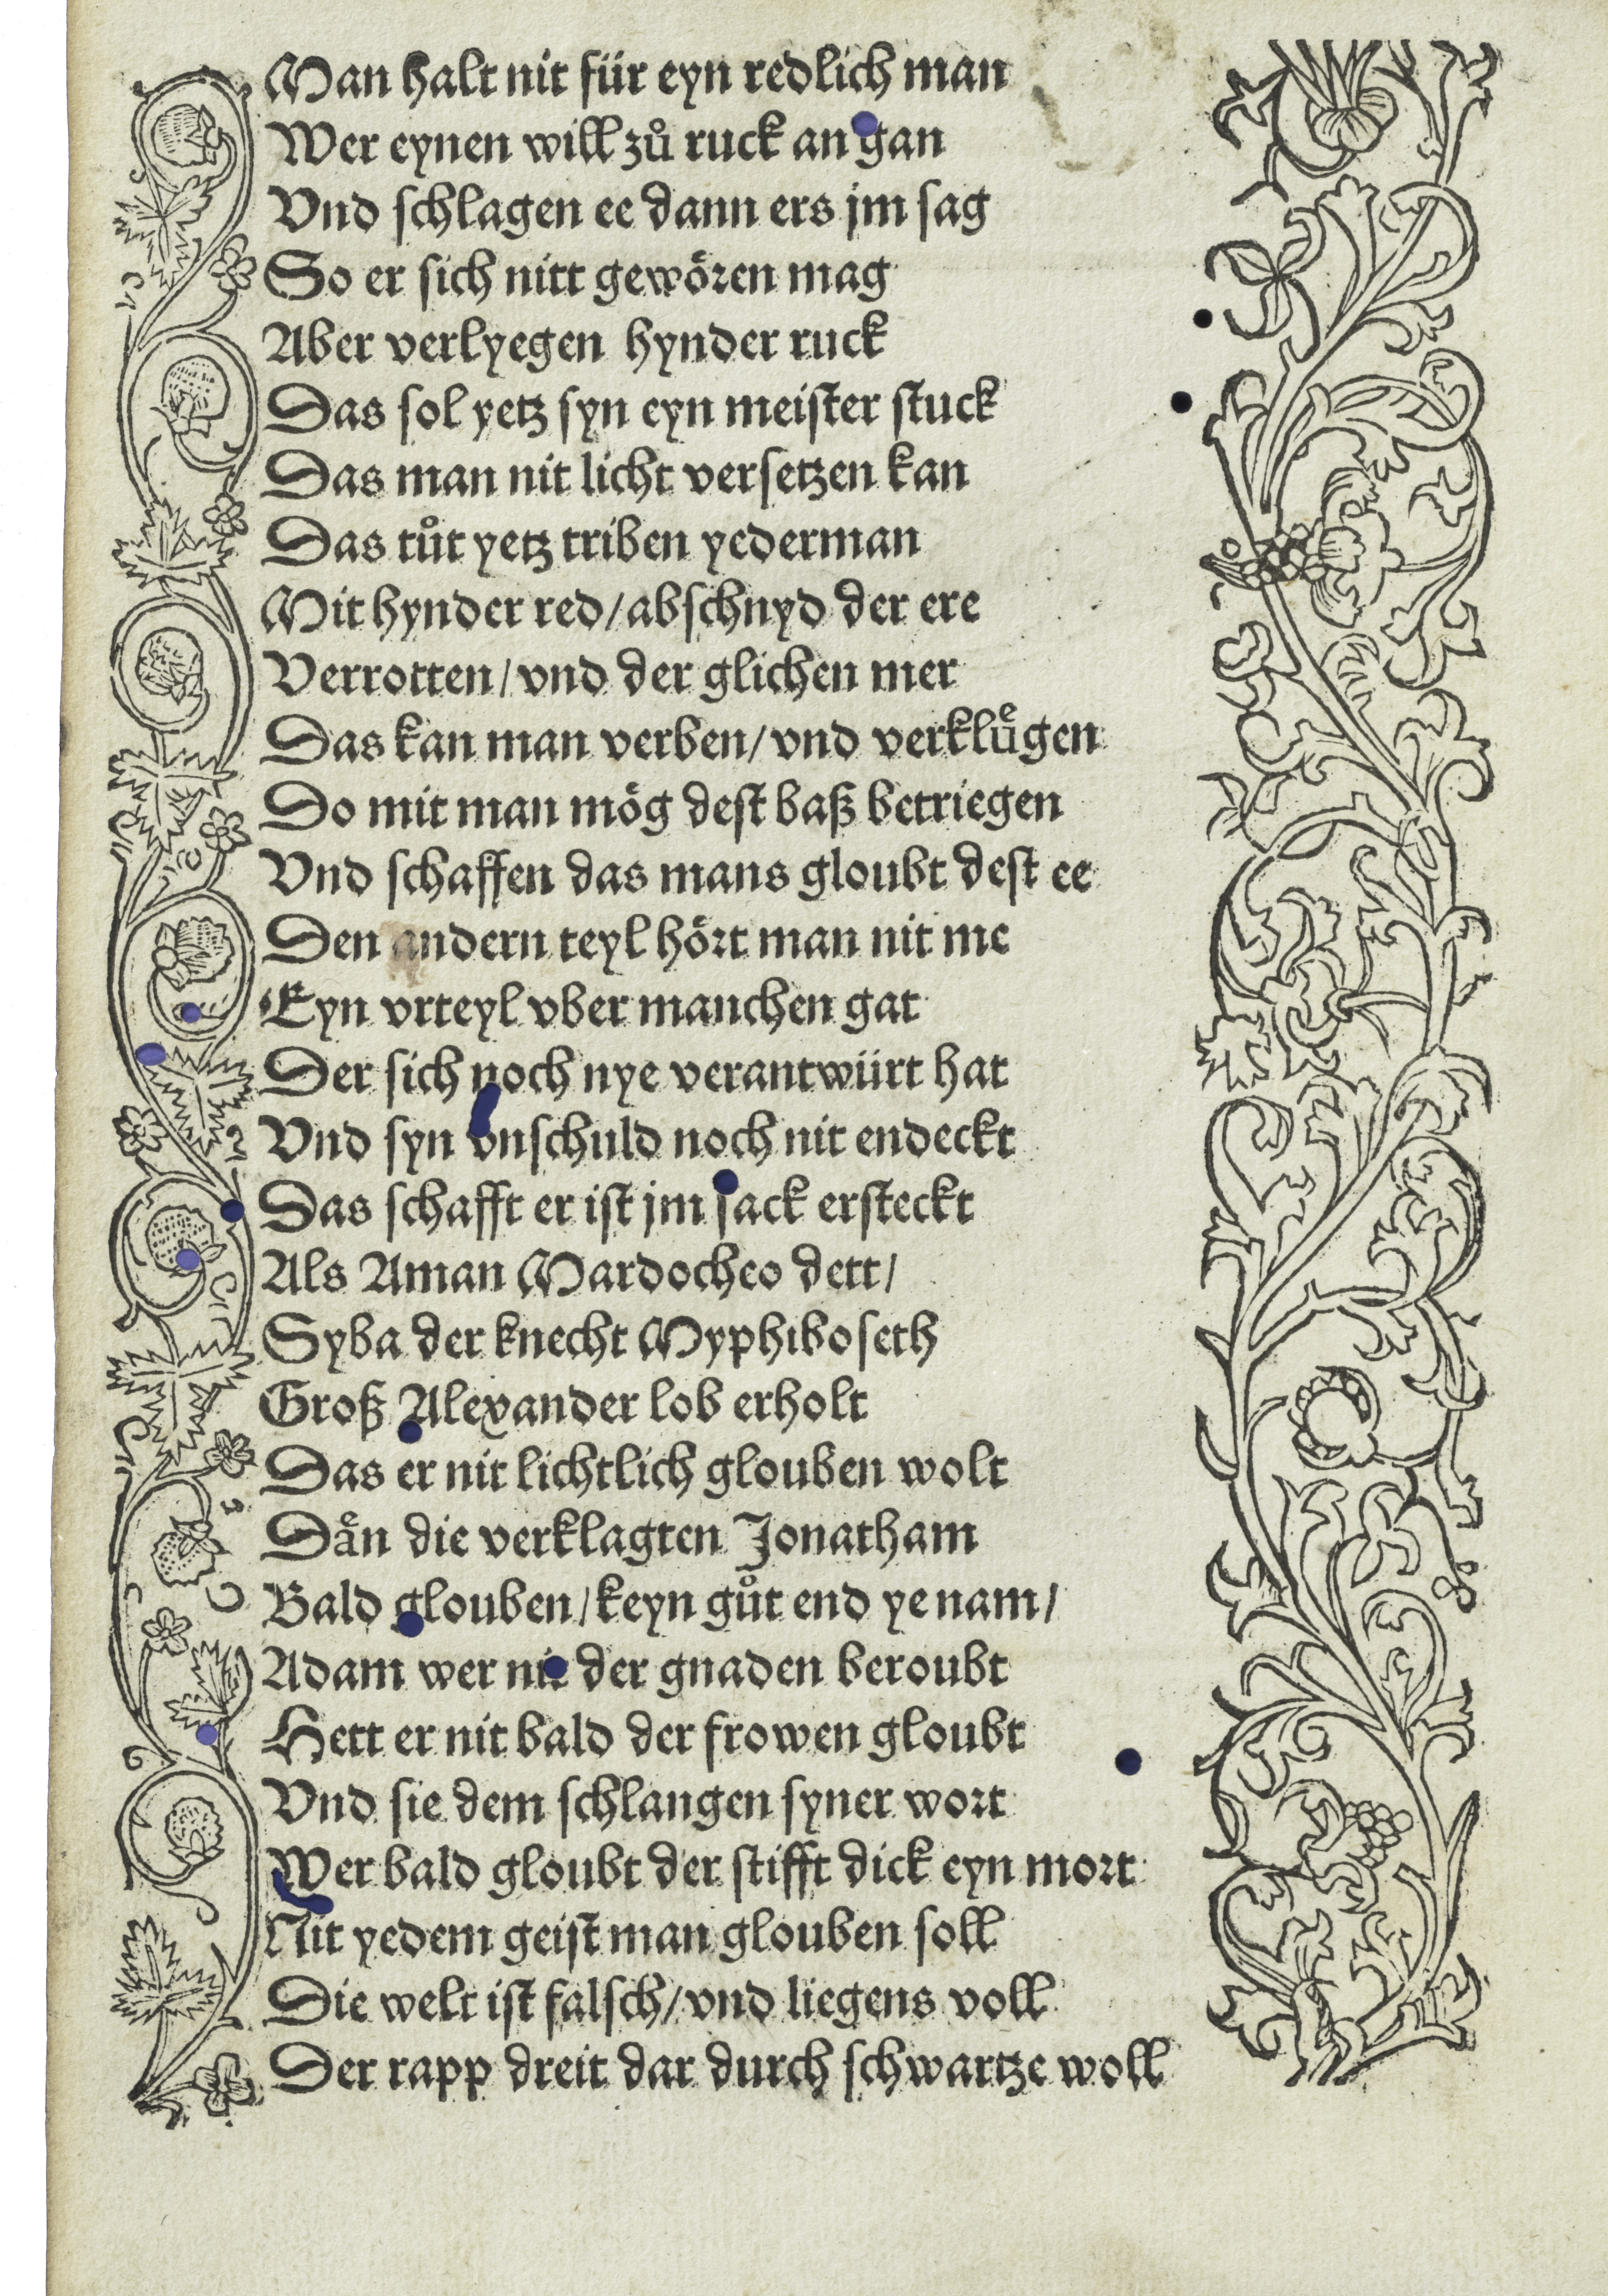 Man halt nit für eyn redlich man
Wer eynen will zů ruck an gan
Vnd schlagen ee dann ers jm sag
So er sich nitt gewören mag
Aber verlyegen hynder ruck
Das sol yetz syn eyn meister stuck
Das man nit licht versetzen kan
Das tůt yetz triben yederman
Mit hynder red/ abschnyd der ere
Verrotten/ vnd der glichen mer
Das kan man verben/ vnd verkluͤgen
Do mit man mög dest baß betriegen
Vnd schaffen das mans gloubt dest ee
Den andern teyl hört man nit me
Eyn vrteyl vber manchen gat
Der sich noch nye verantwürt hat
Vnd syn vnschuld noch nit endeckt
Das schafft er ist jm sack ersteckt
Als Aman Mardocheo dett/
Syba der knecht Myphiboseth
Groß Alexander lob erholt
Das er nit lichtlich glouben wolt
Daͤn die verklagten Jonatham
Bald glouben/ keyn gůt end ye nam/
Adam wer nit der gnaden beroubt
Hett er nit bald der frowen gloubt
Vnd sie dem schlangen syner wort
Wer bald gloubt der stifft dick eyn mort
Nit yedem geist man glouben soll
Die welt ist falsch/ vnd liegens voll
Der rapp dreit dar durch schwartze woll